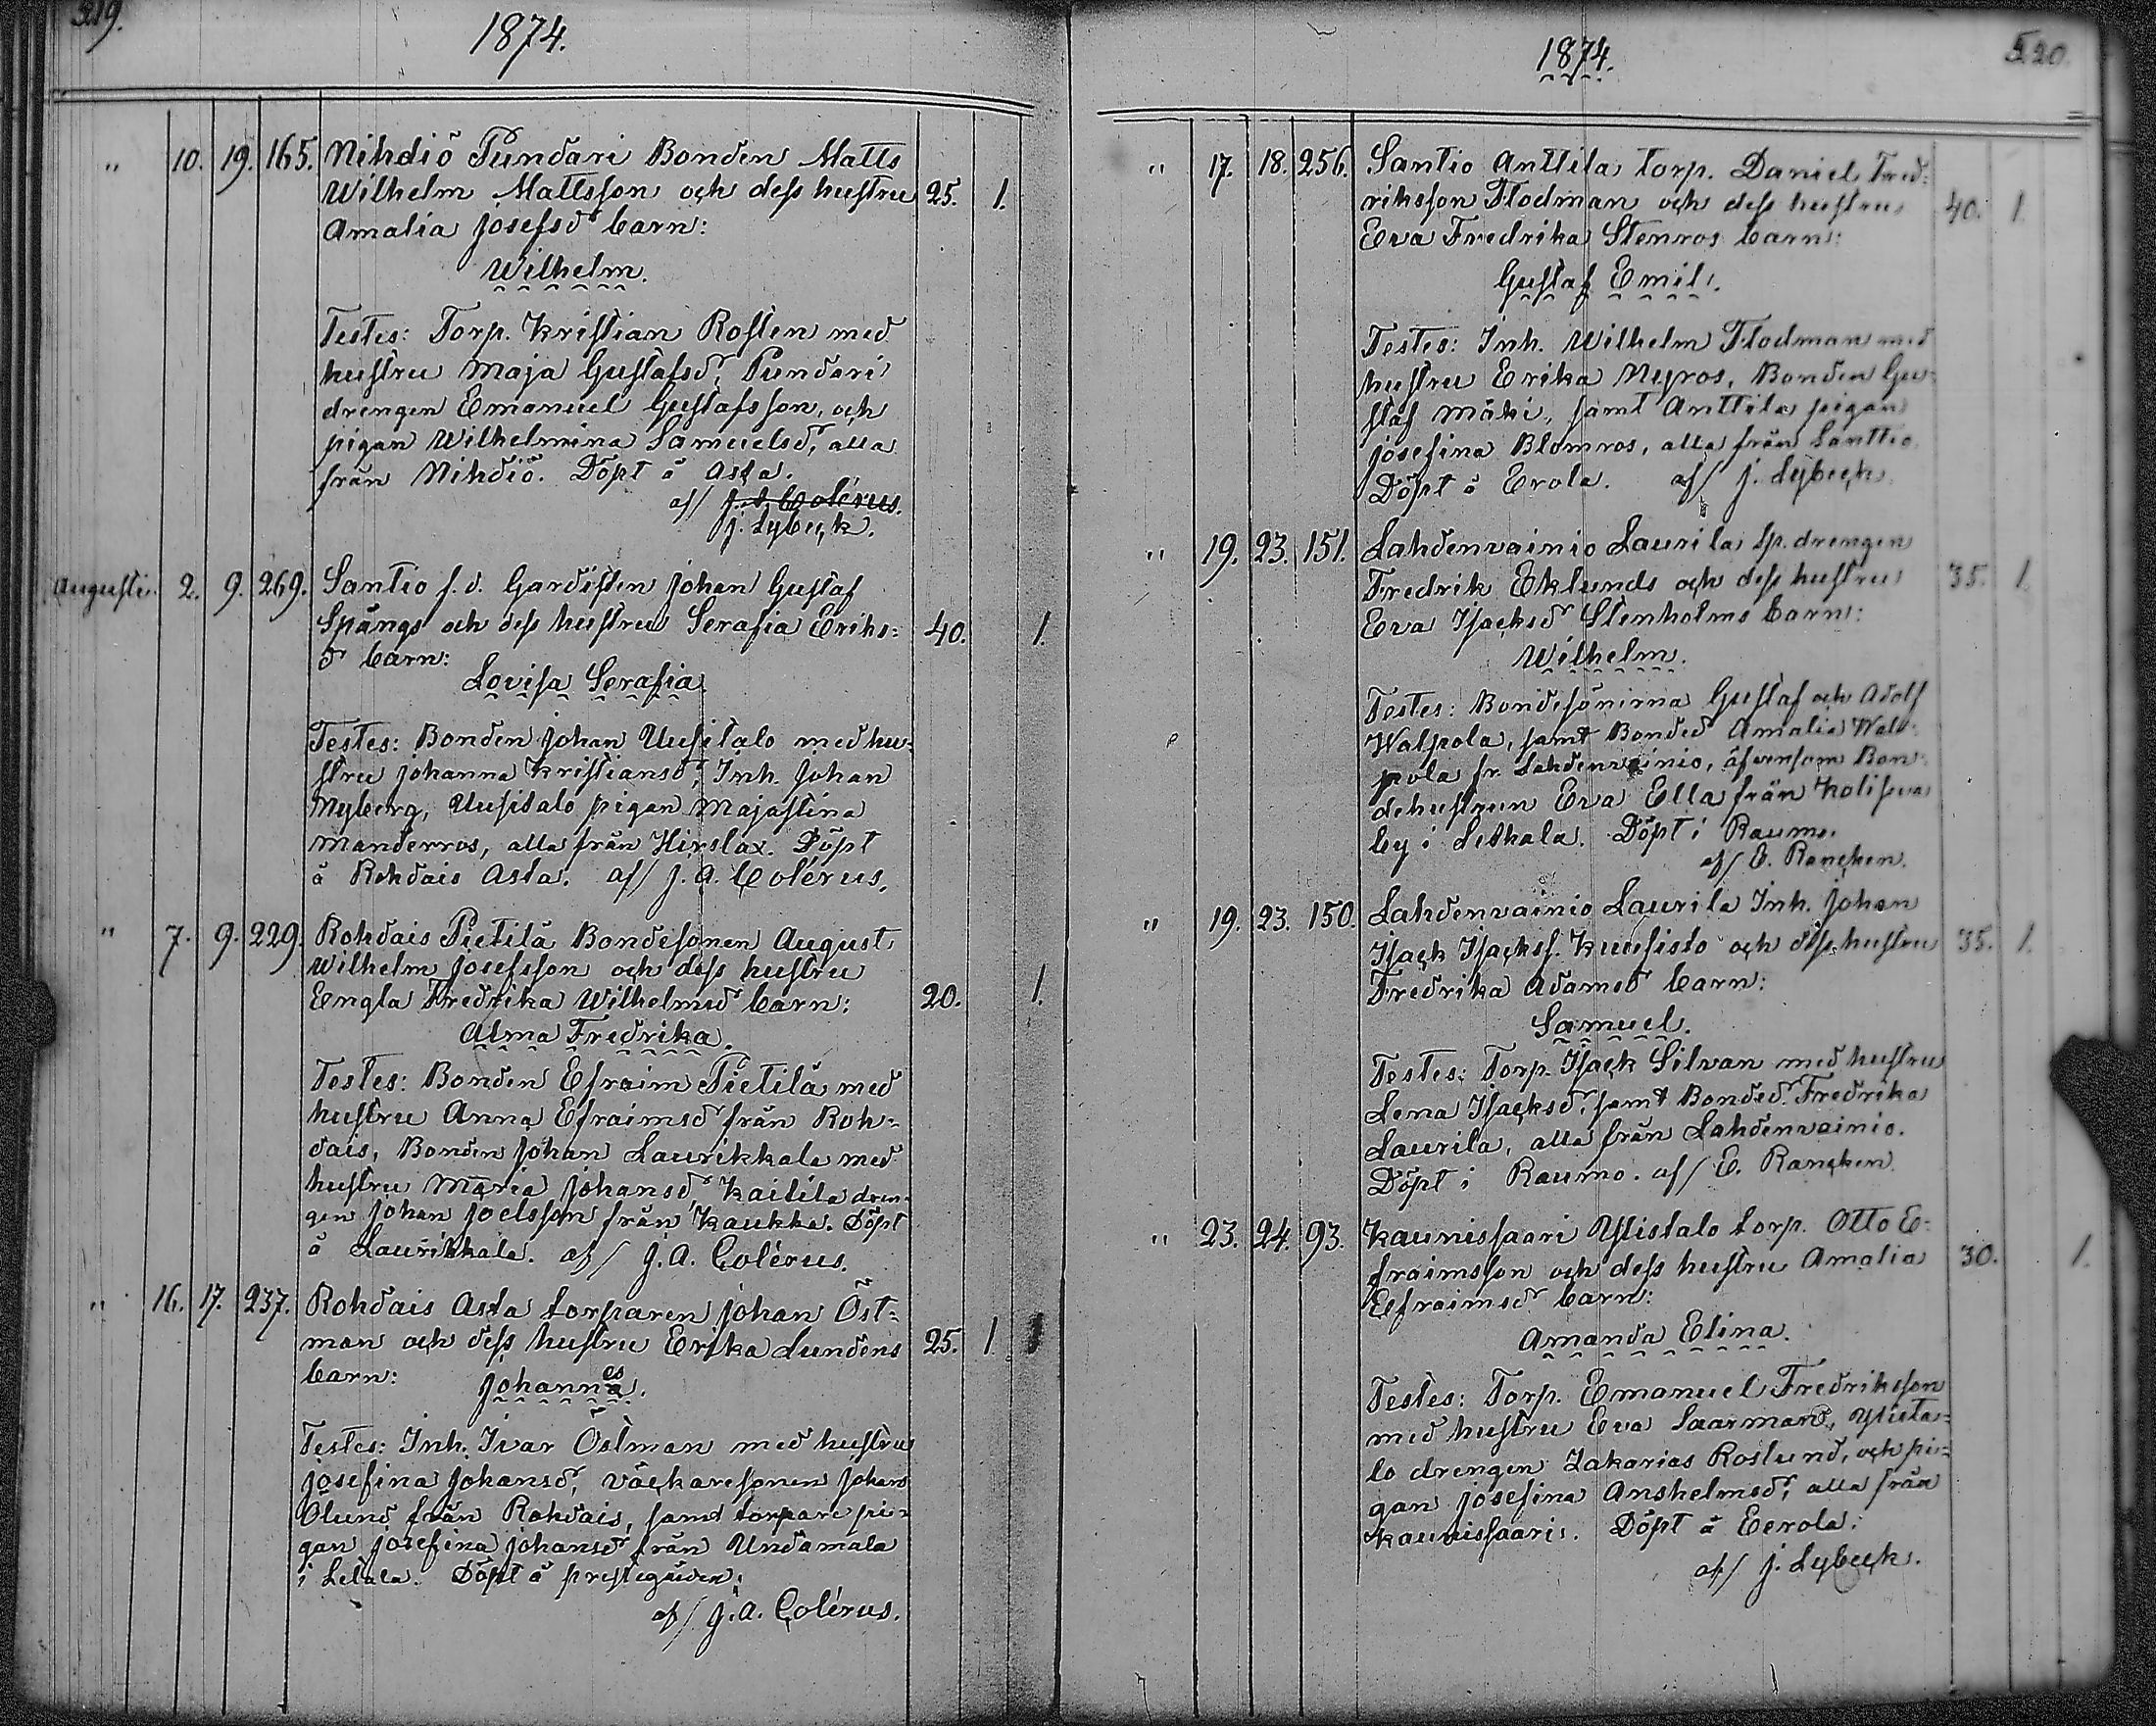 519.
1874.
" 10. 19. 165. Nihdiö Pundari Bonden Matts
Wilhelm Mattsson och dess hustru 25. 1.
Amalia Josefsd barn:
Wilhelm.
Testes: Torp. Kristian Rosten med
hustru Maja Gustafsd, Pundari
drengen Emanuel Gustafsson, och
pigan Wilhelmina Samuelsd, alla
från Nihdiö. Döpt å Asta.
af/ J. A. Colérus.
J. Lybeck.
Augusti. 2. 9. 269. Santio f. d. Gardisten Johan Gustaf
Spångs och dess hustru Serafia Eriks= 40. 1.
d barn:
Lovisa Serafia
Testes: Bonden Johan Uusitalo med hu-
stru Johanna Kristiansd, Inh. Johan
Nyberg, Uusitalo pigan Majastina
Manderros, alla från Hirslax. Döpt
å Rohdais Asta. af/ J. A. Colérus.
" 7. 9. 229. Rohdais Pietilä Bondesonen August
Wilhelm Josefsson och dess hustru
Engla Fredrika Wilhelmsd barn: 20. 1.
Alma Fredrika.
Testes: Bonden Efraim Pietilä med
hustru Anna Efraimsd från Roh=
dais, Bonden Johan Laurikkala med
hustru Maria Johansd, Kaitila dren-
gen Johan Joelsson från Kaukka. Döpt
å Laurikkala. af/ J. A. Colérus.
" 16. 17. 237. Rohdais Asta torparen Johan Öst=
man och dess hustru Erika Lundens 25. 1
barn: Johannes.
Testes: Inh. Ivar Östman med hustru
Josefina Johansd, väckaresonen Johan
Ölund från Rohdais, samt torpare pi=
gan Josefina Johansd från Undamala
i Letala. Döpt å prestegården.
af/ J. A. Colérus.
520.
1874.
" 17. 18. 256. Santio Anttila torp. Daniel Fred=
riksson Flodman och dess hustru 40. 1.
Eva Fredrika Stenros barn:
Gustaf Emil.
Testes: Inh. Wilhelm Flodman med
hustru Erika Nyros, Bonden Gu-
staf Mäki, samt Anttila pigan
Josefina Blomros, alla från Santtio.
Döpt å Erola. af/ J. Lybeck.
" 19. 23. 151. Lahdenvainio Laurila sp. drengen
Fredrik Eklunds och dess hustru 35. 1.
Eva Isacksd Stenholms barn:
Wilhelm.
Testes: Bondesönerna Gustaf och Adolf
Walpola, samt Bonded Amalia Wal-
pola fr. Lahdenvainio, äfvensom Bon-
dehustrun Eva Ella från
by i Letkala. Döpt i Raumo.
af/ E. Rancken.
" 19. 23. 150. Lahdenvainio Laurila Inh. Johan
Isack Isackss. Kuusisto och dess hustru 35. 1.
Fredrika Adamsd barn:
Samuel.
Testes: Torp. Isack Silvan med hustru
Lena Isacksd, samt Bonded. Fredrika
Laurila, alla från Lahdenvainio.
Döpt i Raumo. af/ E. Rancken.
" 23. 24. 93. Kaunissaari Ylistalo torp. Otto E=
fraimsson och dess hustru Amalia 30. 1.
Efraimsd barn:
Amanda Elina.
Testes: Torp. Emanuel Fredriksson
med hustru Eva Saarman, Ylista=
lo drengen Zakarias Roslund, och pi=
gan Josefina Anshelmsd, alla från
Kaunissaari. Döpt å Eerola.
af/ J. Lybeck.